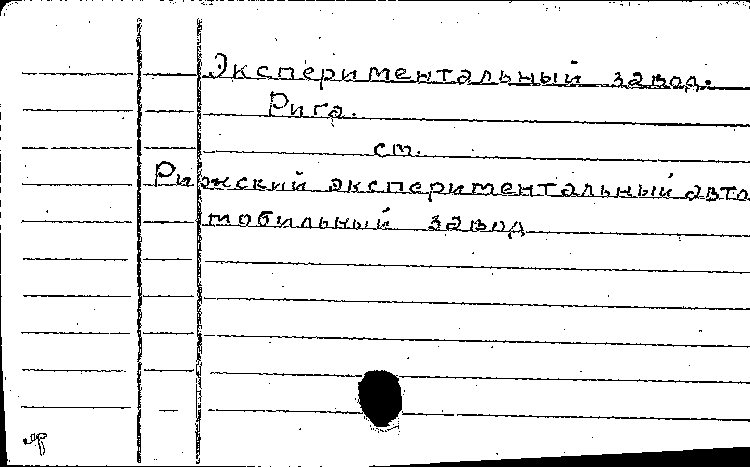 Экспериментальный завод.
Рига.
см.
Рижский экспериментальный авто
мобильный завод